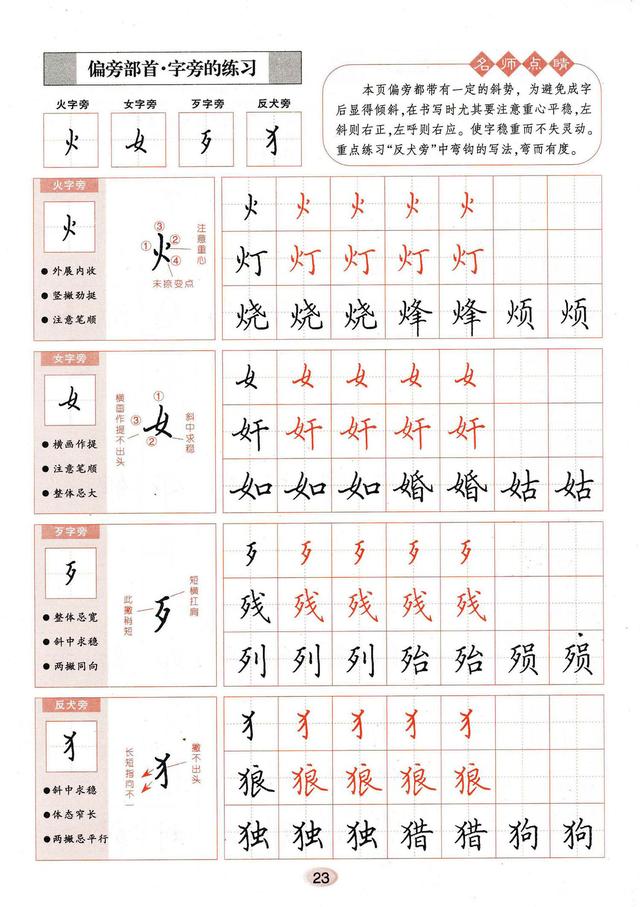 偏旁部首·字旁的练习
名师点睛
火字旁 女字旁 歹字旁 反犬旁
火 女 歹 犭
本页偏旁都带有一定的斜势，为避免成字
后显得倾斜，在书写时尤其要注意重心平稳，左
斜则右正，左呼则右应。使字稳重而不失灵动。
重点练习“反犬旁”中弯钩的写法，弯而有度。
火字旁
火
● 外展内收
● 竖撇劲挺
● 注意笔顺
火
③
① ②
④
注意重心
末捺变点
火 火 火 火 火
灯 灯 灯 灯 灯
烧 烧 烧 烽 烽 烦 烦
女字旁
女
● 横画作提
● 注意笔顺
● 整体忌大
女
①
③
②
横画作提不出头
斜中求稳
女 女 女 女 女
奸 奸 奸 奸 奸
如 如 如 婚 婚 姑 姑
歹字旁
歹
● 整体忌宽
● 斜中求稳
● 两撇同向
歹
此撇稍短
短横扛肩
歹 歹 歹 歹 歹
残 残 残 残 残
列 列 列 殆 殆 殒 殒
反犬旁
犭
● 斜中求稳
● 体态窄长
● 两撇忌平行
犭
长短指向不一
撇不出头
犭 犭 犭 犭 犭
狼 狼 狼 狼 狼
独 独 独 猎 猎 狗 狗
23